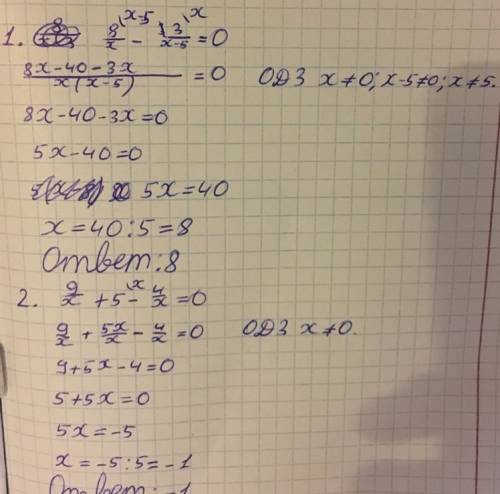 1. 8/x \x-5 - 3/x-5 \x = 0
8x-40-3x / x(x-5) = 0 ОДЗ x≠0; x-5≠0; x≠5.
8x-40-3x=0
5x-40=0
5x=40
x=40:5=8
Ответ: 8
2. 9/x + 5 \x - 4/x = 0
9/x + 5x/x - 4/x = 0 ОДЗ x≠0.
9+5x-4=0
5+5x=0
5x=-5
x=-5:5=-1
Ответ: -1